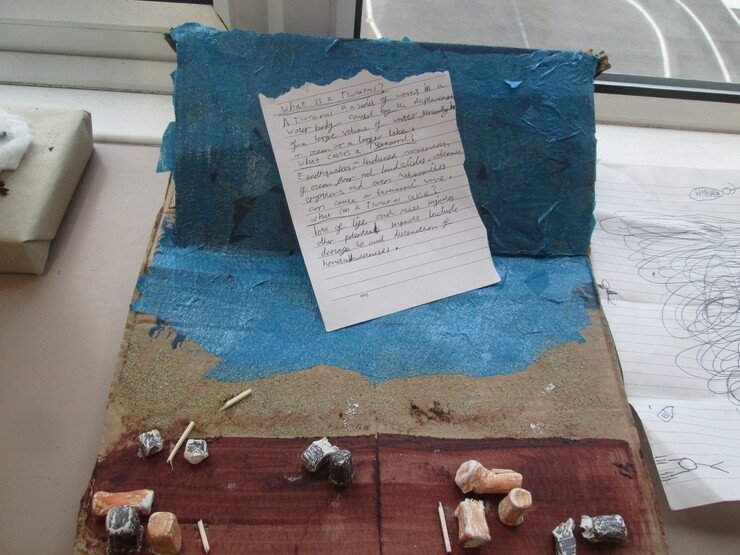 What is a Tsunami?
A Tsunami is a series of waves in a
water body caused by the displacement
of a large volume of water, generally in
an ocean or a large lake.
What causes a Tsunami?
Earthquakes, induced movement
of ocean floor and landslides, volcanic
eruptions and even meteorites
can cause a tsunami wave.
What can a Tsunami cause?
loss of life and mass injuries
other potential impacts include
damage to and destruction of
homes/businesses.
Date